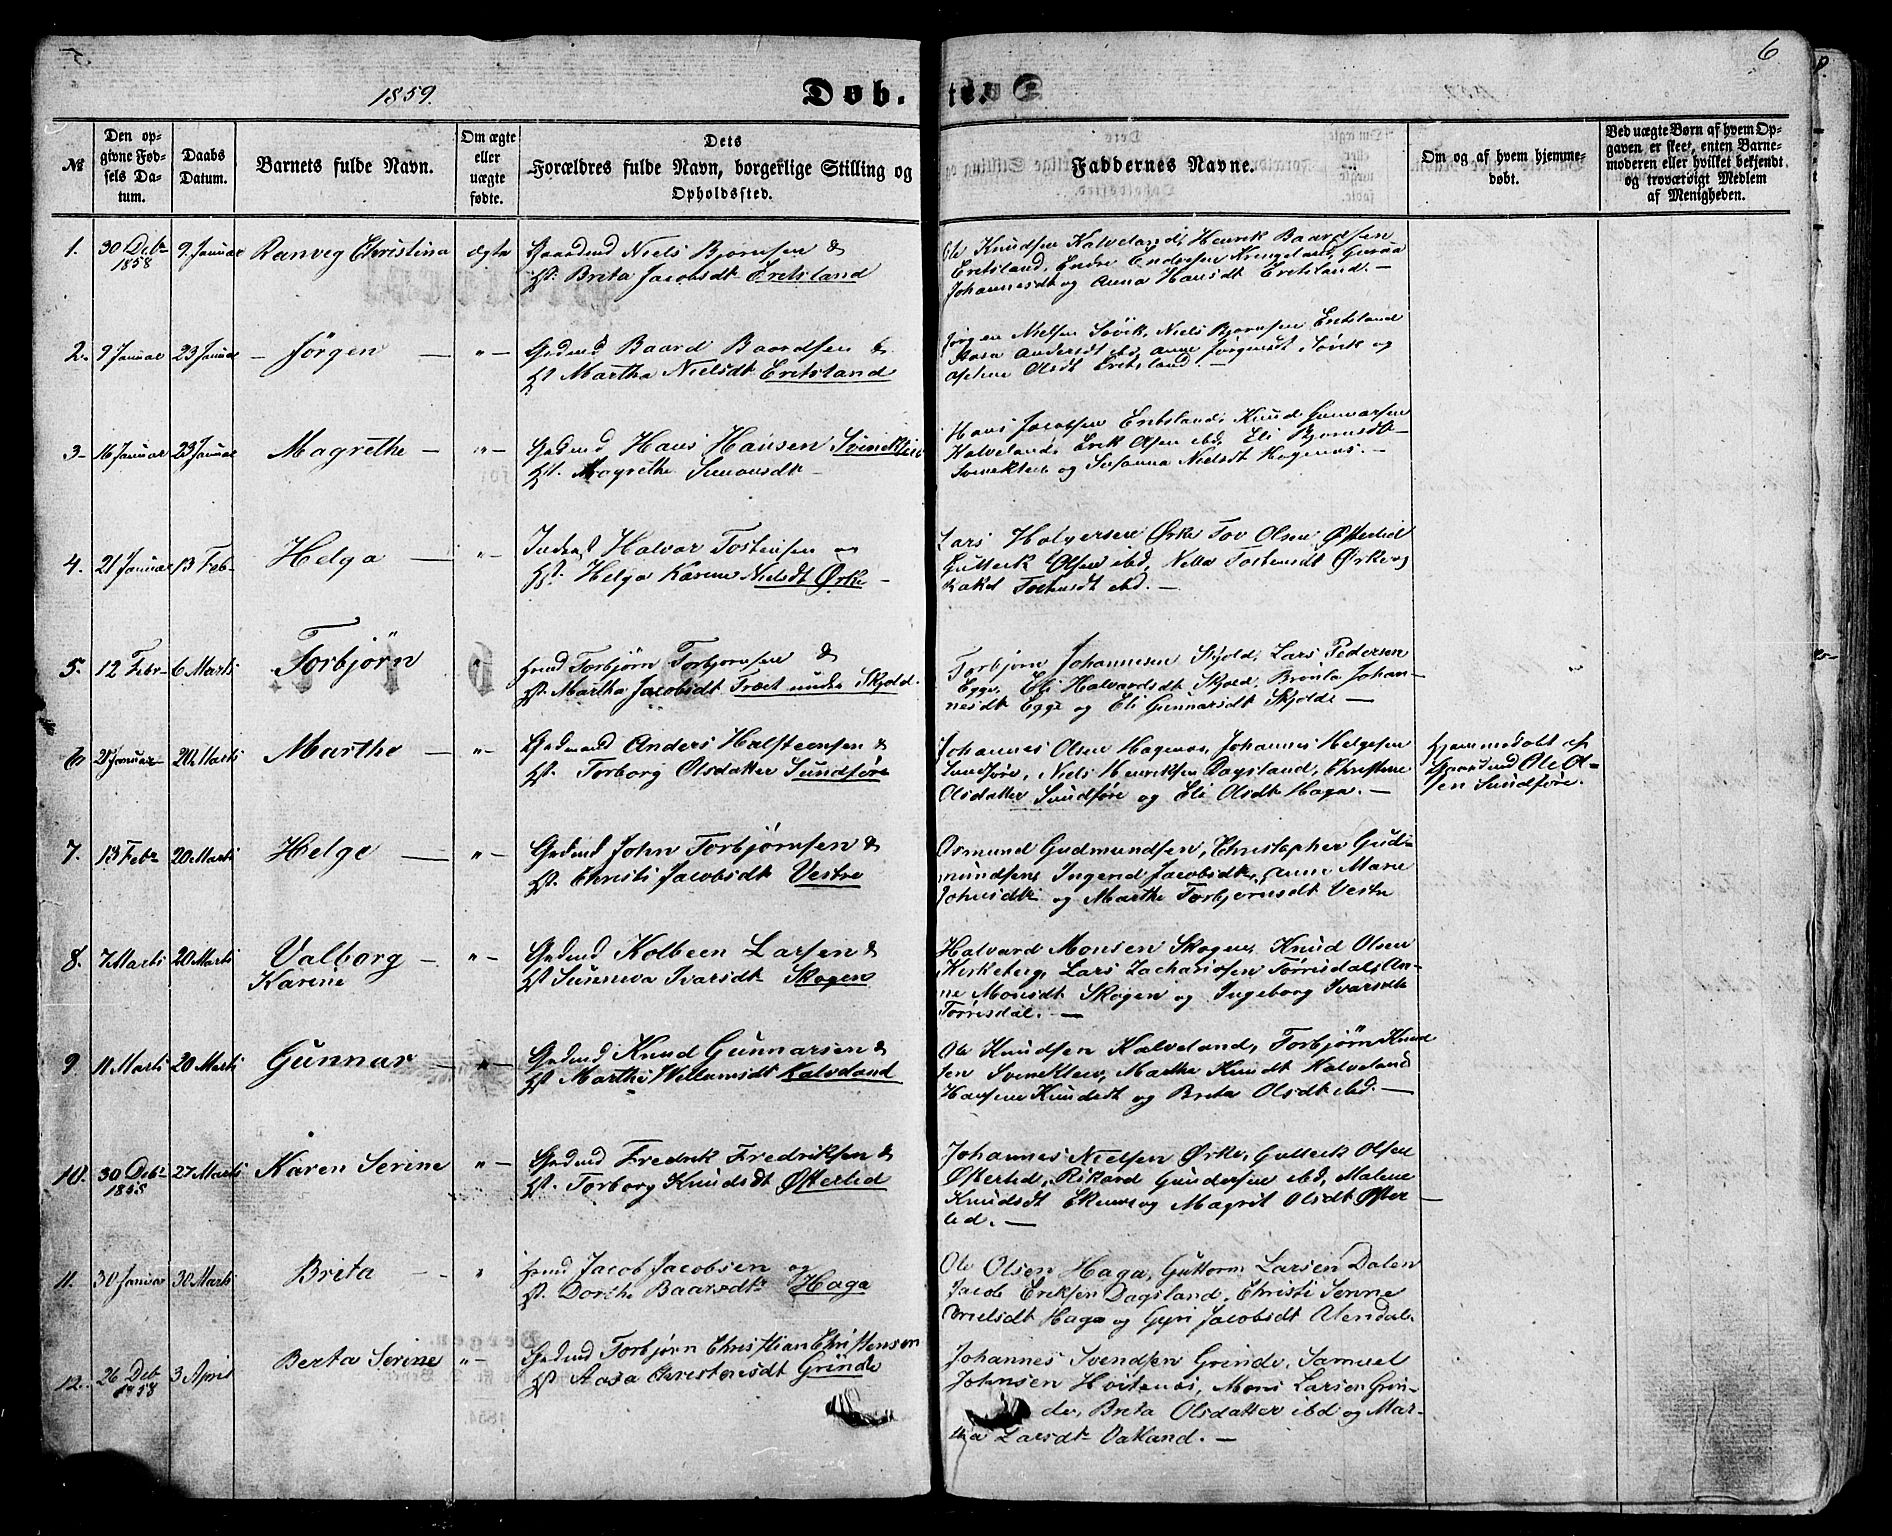 5
6
1859.
Døb-
te.
№
Den op-
givne Fød-
sels Da-
tum.
Daabs
Datum.
Barnets fulde Navn.
Om ægte
eller
uægte
fødte.
Dets
Forældres fulde Navn, borgerlige Stilling og
Opholdssted.
Faddernes Navne.
Om og af hvem hjemme-
døbt.
Ved uægte Børn af hvem Op-
gaven er skeet, enten Barne-
moderen eller hvilket bekjendt
og troværdigt Medlem
af Menigheden.
1. 30 Debr 9. Januar Ranveg Christina ægte Gaardmd Niels Bjørnsen &
1858
Hst. Brita Jacobsdt Eretsland
Ole Knudsen Kalveland, Henrik Baardsen
Eretsland, Endre Endresen Kringeland,
Johannesdt og Anna Hansdt Eretsland. —
2. 9 Januar 23 Januar — Jørgen — "— Grdmd Baard Baardsen &
Hst Martha Nielsdt Eretsland
Jørgen Nielsen Søvik, Niels Bjørnsen Eretsland
Andersdt ibd, Anne Jørgensdt Søvik og
Olsdt Eretsland. —
3. 16 Januar 23 Januar Magrethe — "— Grdmd Hans Hansen Svineklei
Hst. Magrethe Simonsdt —
Hans Jacobsen Eretsland, Knud Gunnarsen
Kalveland, Erik Olsen ibd, Eli Bjørnsdt
Svineklei og Susanna Nielsdt Hagenes. —
4. 21 Januar 13 Feb— Helga — "— Inderst Halvar Tostensen og
Hst. Helga Karine Nielsdt Ørke —
Lars Halversen Ørke Tov Olsen Østerlid
Gulleik Olsen ibd, Nella Tostensdt Ørke og
Rakel Tostensdt ibd. —
5. 12 Febr— 6 Marts Torbjørn Torbjørn Torbjørnsen &
Hst. Martha Jacobsdt Træet under Skjold.
Torbjørn Johannesen Skjold, Lars Pedersen
Egge, Eli Halvardsdt Skjold, Brønla Johan-
nesdt Egge og Eli Gunnarsdt Skjolde —
6 28 Januar— 20 Marts Martha — "— Grdmand Anders Halsteensen &
Hst. Torborg Olsdatter Sundføre
Johannes Olsen Hagenes, Johannes Helgesen
Sundføre, Niels Henriksen Dagsland, Christine
Olsdatter Sundføre og Eli Olsdt Haga. —
Hjemmedøbt af
Gaardmd Ole Ol-
sen Sundføre.
7. 13 Febr 20 Marts Helge — "— Grdmd John Torbjørnsen &
Hst. Christi Jacobsdt Vestre
Osmund Gudmundsen, Christopher Gud-
mundsen, Ingend Jacobsdt, Anne Marie
Johnsdt og Martha Torbjørnsdt Vestre
8. 7 Marts 20 Marts Valborg — "— Grdmd Kolbeen Larsen &
Karine
Hst Sunneva Ivarsdt Skogen
Halvard Monsen Skogen, Knud Olsen
Kirkeberg, Lars Zachariasen Tørrisdal, An-
ne Monsdt Skogen og Ingeborg Ivarsdt
Tørrisdal. —
9. 11 Marts 20 Marts Gunnar — Grdmd Knud Gunnarsen &
Hst Martha Willumsdt Kalveland
Ole Knudsen Kalveland, Torbjørn Knud
sen Svineklei, Martha Knudt Kalveland
Knudsdt og Breta Olsdt ibd. —
10. 30 Debr 27 Marts Karen Serine "— Grdmd Fredrik Fredriksen &
1858
Hst. Torborg Knudsdt Østerlid
Johannes Nielsen Ørke, Gulleik Olsen
Østerlid, Rikard Gundersen ibd, Malene
Knudsdt og Magrit Olsdt Øster —
lid. —
11. 30 Januar 30 Marts Brita — " Jacob Jacobsen og
Hst. Dorthe Baarsdt Haga
Ole Olsen Haga, Guttorm Larsen Dalen
Jacob Eriksen Dagsland, Christi Serine
Haga og Gyri Jacobsdt
12. 26 Deb 3 April Berta Serine "— Grdmd Torbjørn Christian Christensen
1858
Hst. Aasa Christensdt Grinde
Johannes Svendsen Grinde, Samuel
Johnsen Hvitenes, Mons Larsen Grin-
de, Breta Olsdatter ibd og Mar-
tha Larsdt Oakland. —